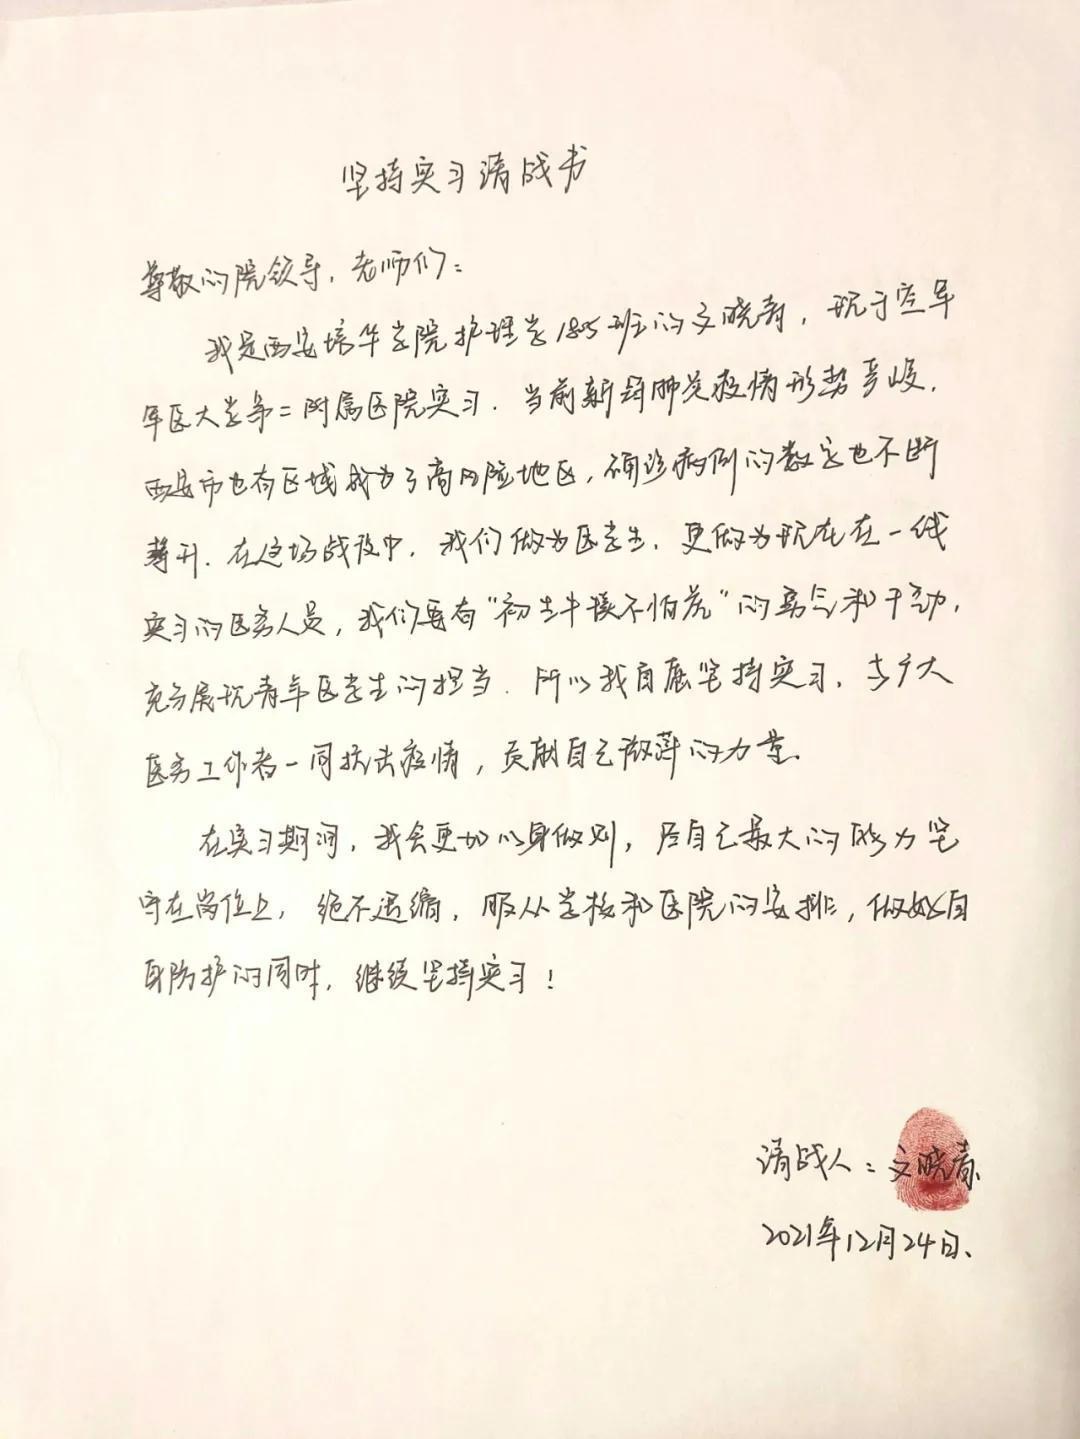 坚持实习请战书
尊敬的院领导，老师们：
我是西安培华学院护理学1805班的文晓青，现于空军
军医大学第二附属医院实习．当前新冠肺炎疫情形势严峻，
西安市也有区域成为了高风险地区，确诊病例的数字也不断
攀升．在这场战役中，我们做为医学生，更做为现在在一线
实习的医务人员，我们要有“初生牛犊不怕虎”的勇气和干劲，
充分展现青年医学生的担当．所以我自愿坚持实习，与广大
医务工作者一同抗击疫情，贡献自己微薄的力量．
在实习期间，我会更加以身做则，尽自己最大的能力坚
守在岗位上，绝不退缩，服从学校和医院的安排，做好自
身防护的同时，继续坚持实习！
请战人：文晓青
2021年12月24日．